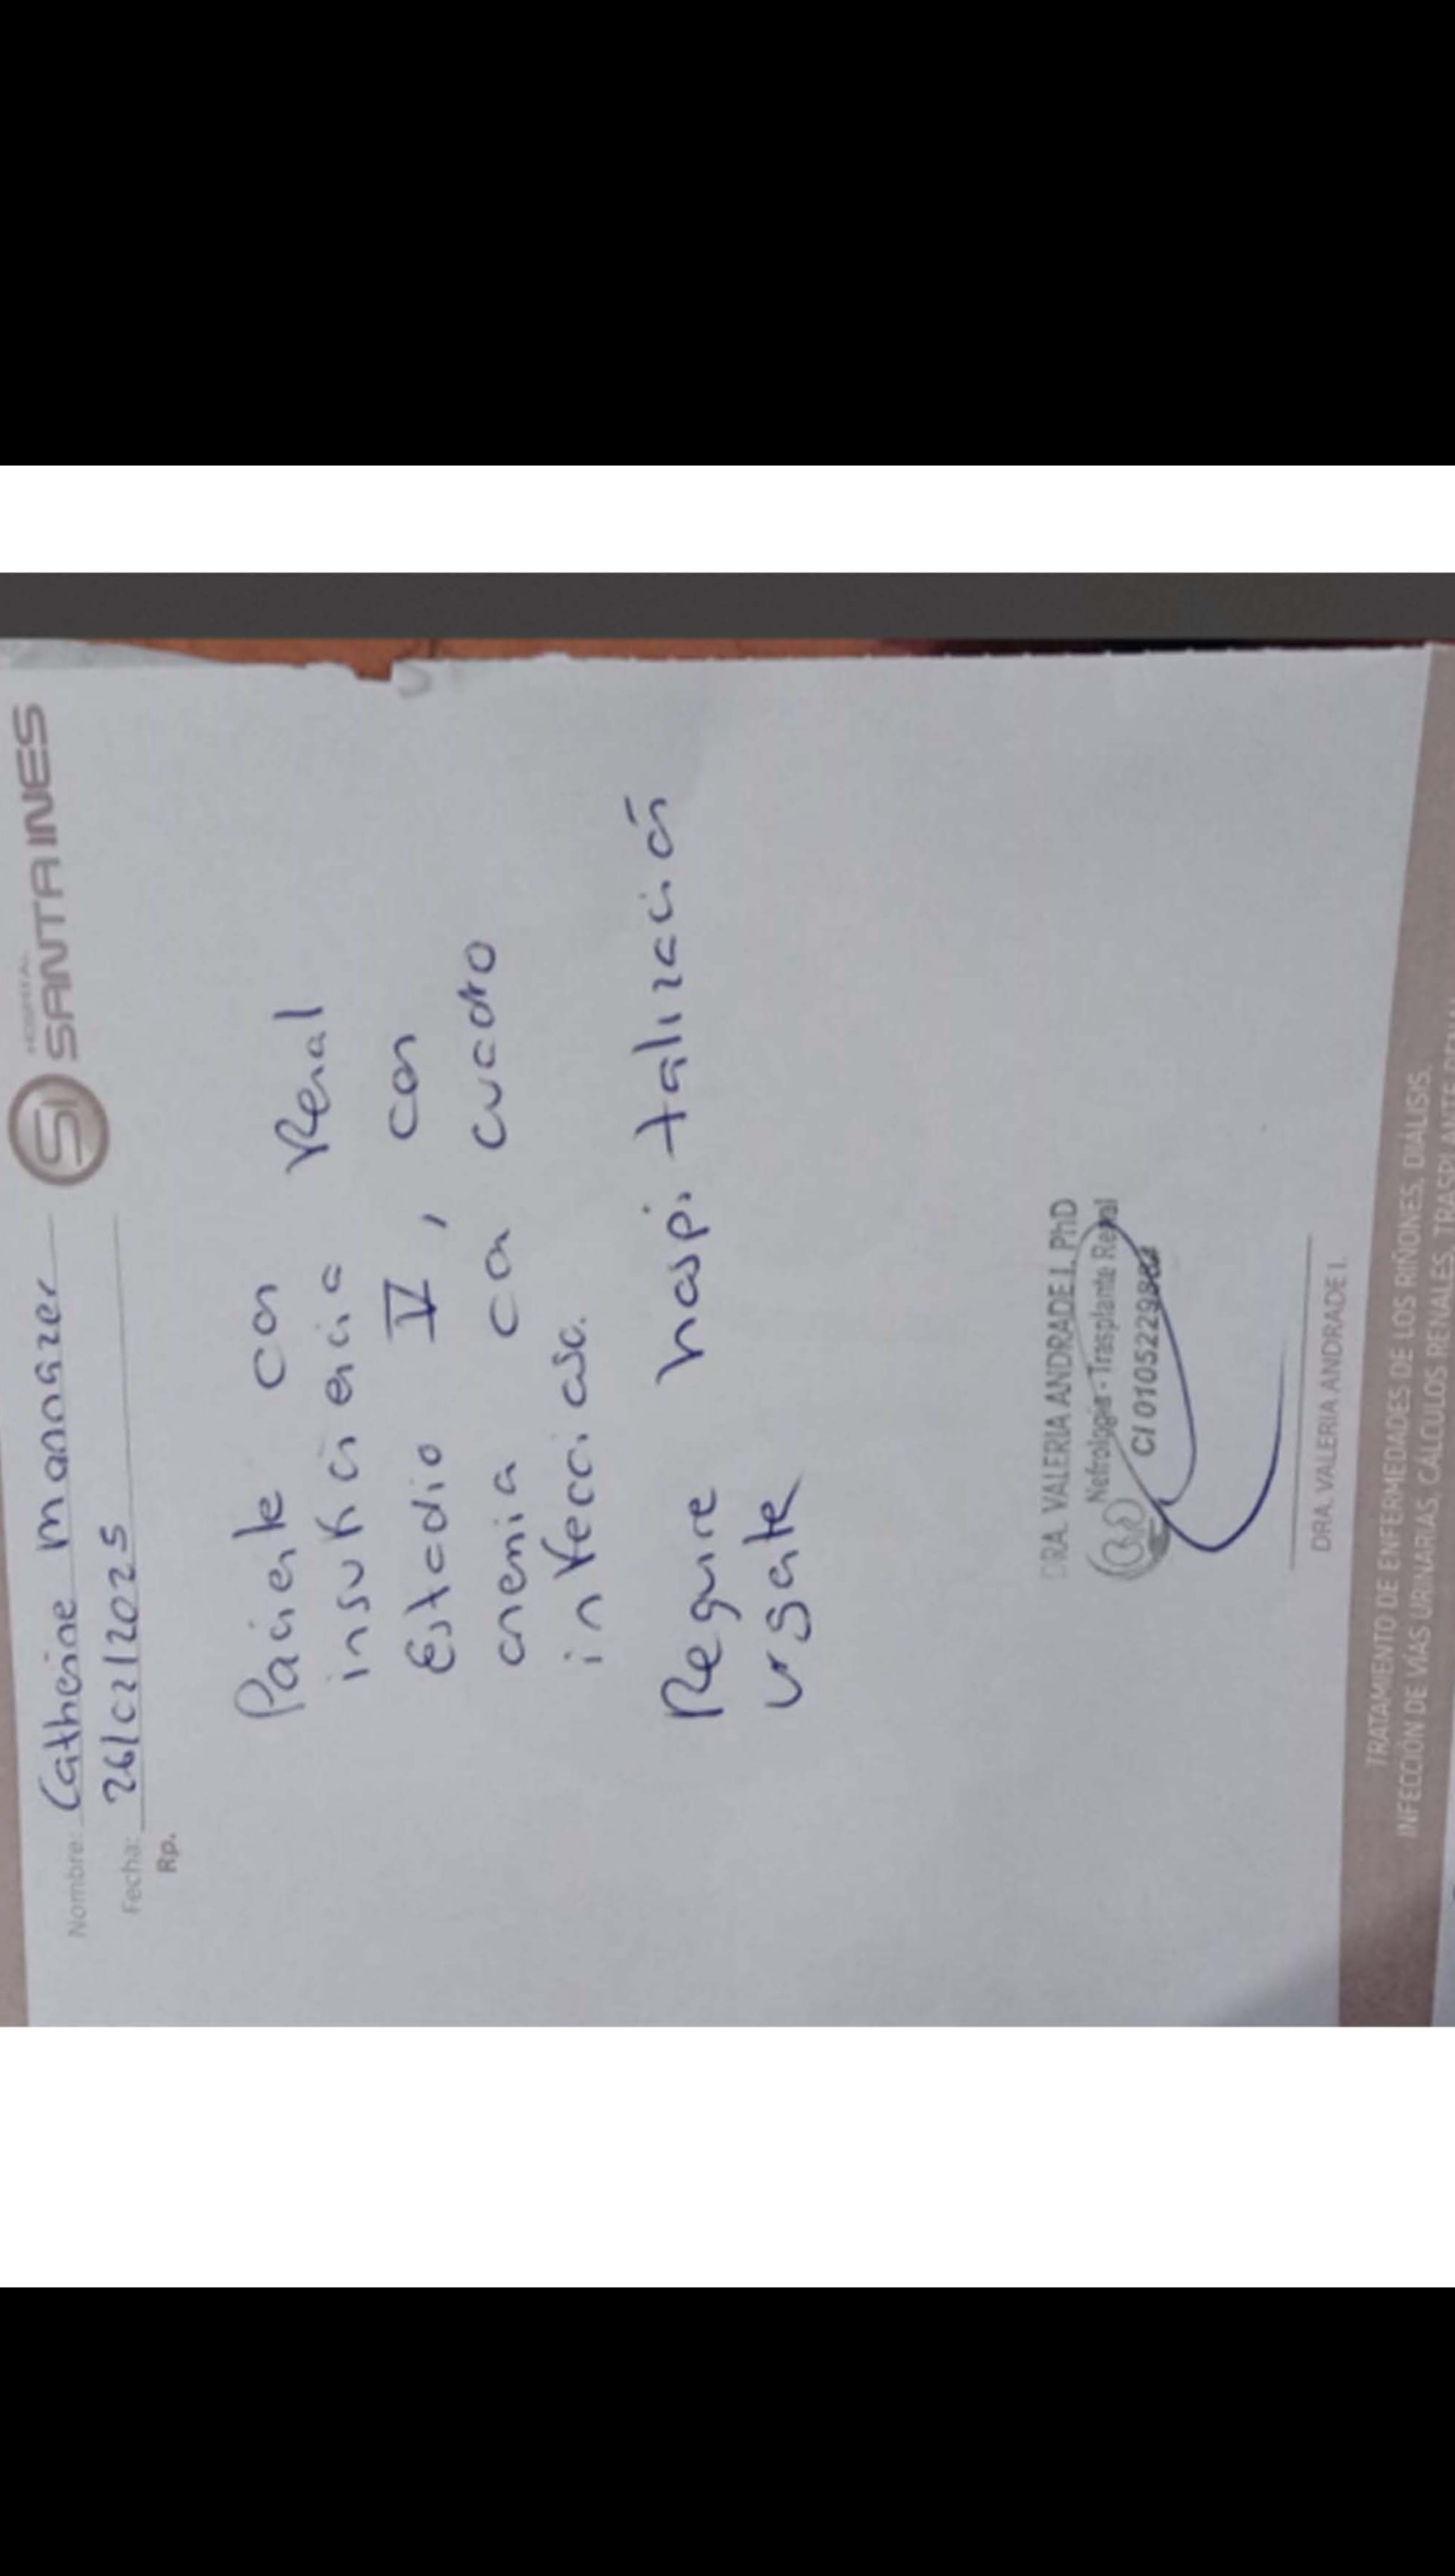 HOSPITAL
SI SANTA INES
Nombre: Catherine Manoazer
Fecha: 26/02/2025
Rp.
Paciente con
insuficiencia Renal
Estadio V, con
anemia con cuadro
infeccioso.
Require hospitalización
urgate
DRA. VALERIA ANDRADE I. PhD
Nefrología - Trasplante Renal
CI 0105229884
DRA. VALERIA ANDRADE I.
TRATAMIENTO DE ENFERMEDADES DE LOS RIÑONES, DIÁLISIS,
INFECCIÓN DE VÍAS URINARIAS, CÁLCULOS RENALES, TRASPLANTE